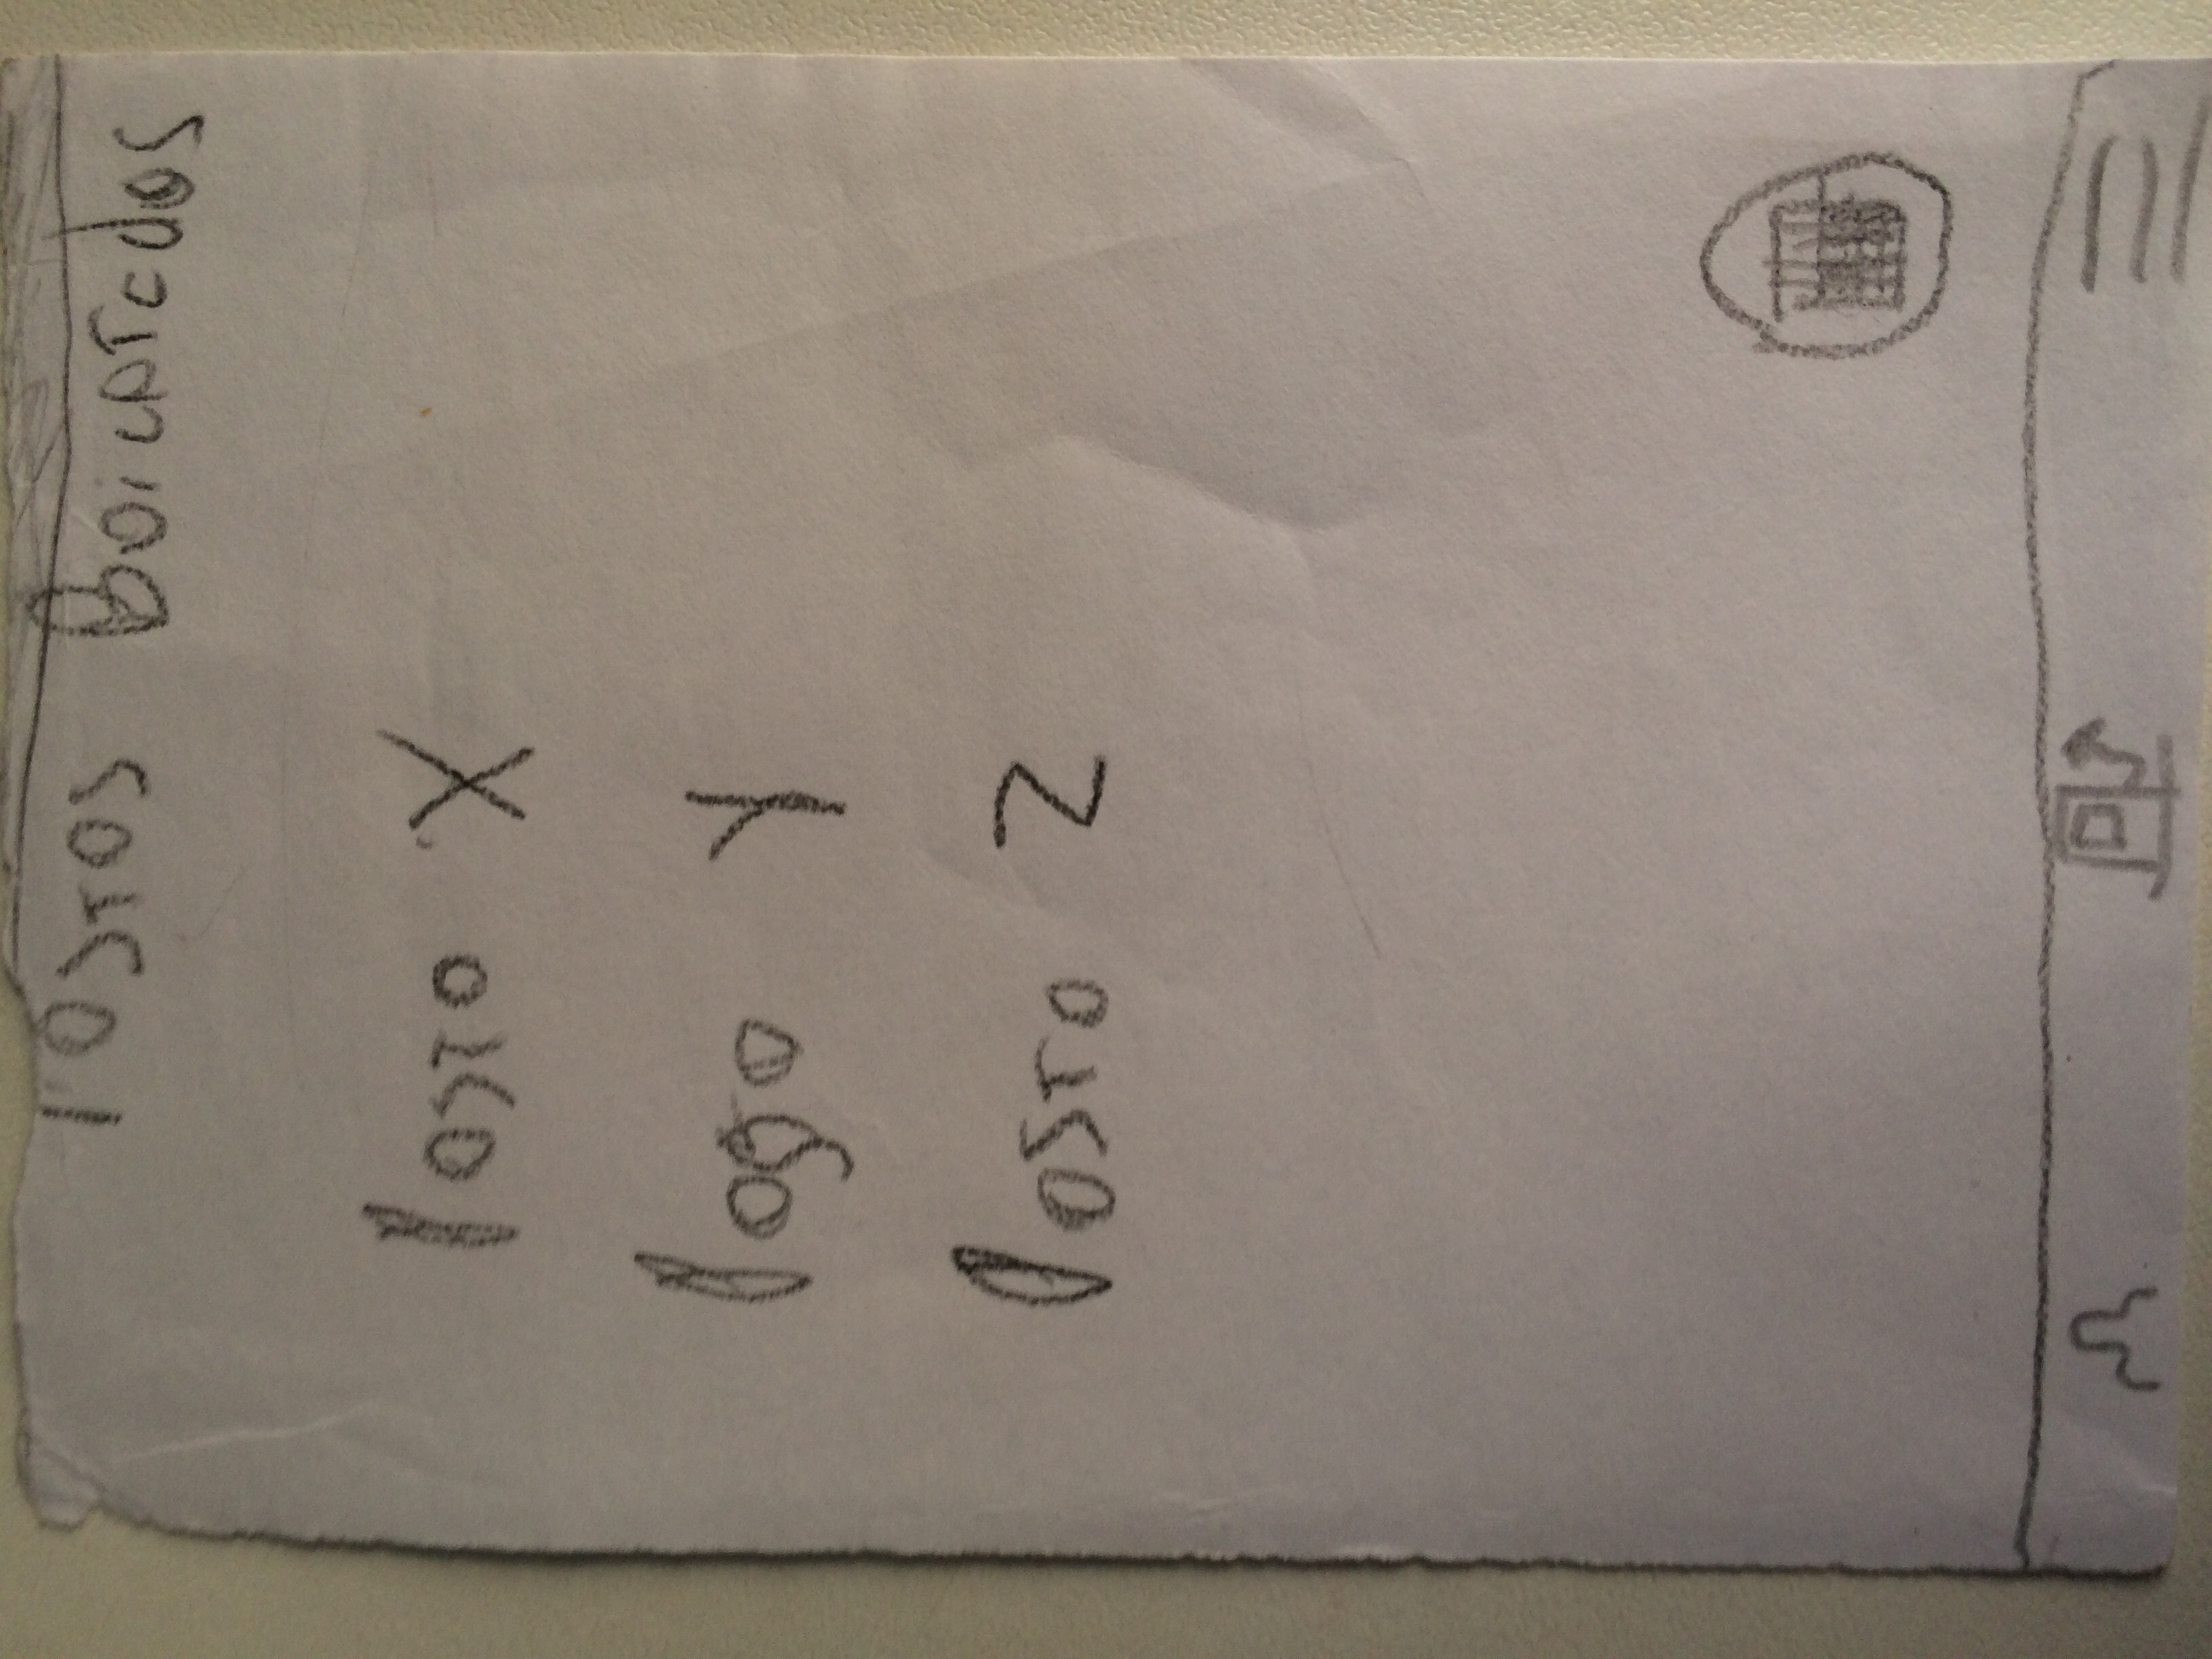 Postos Boicotados
Posto X
Posto Y
Posto Z